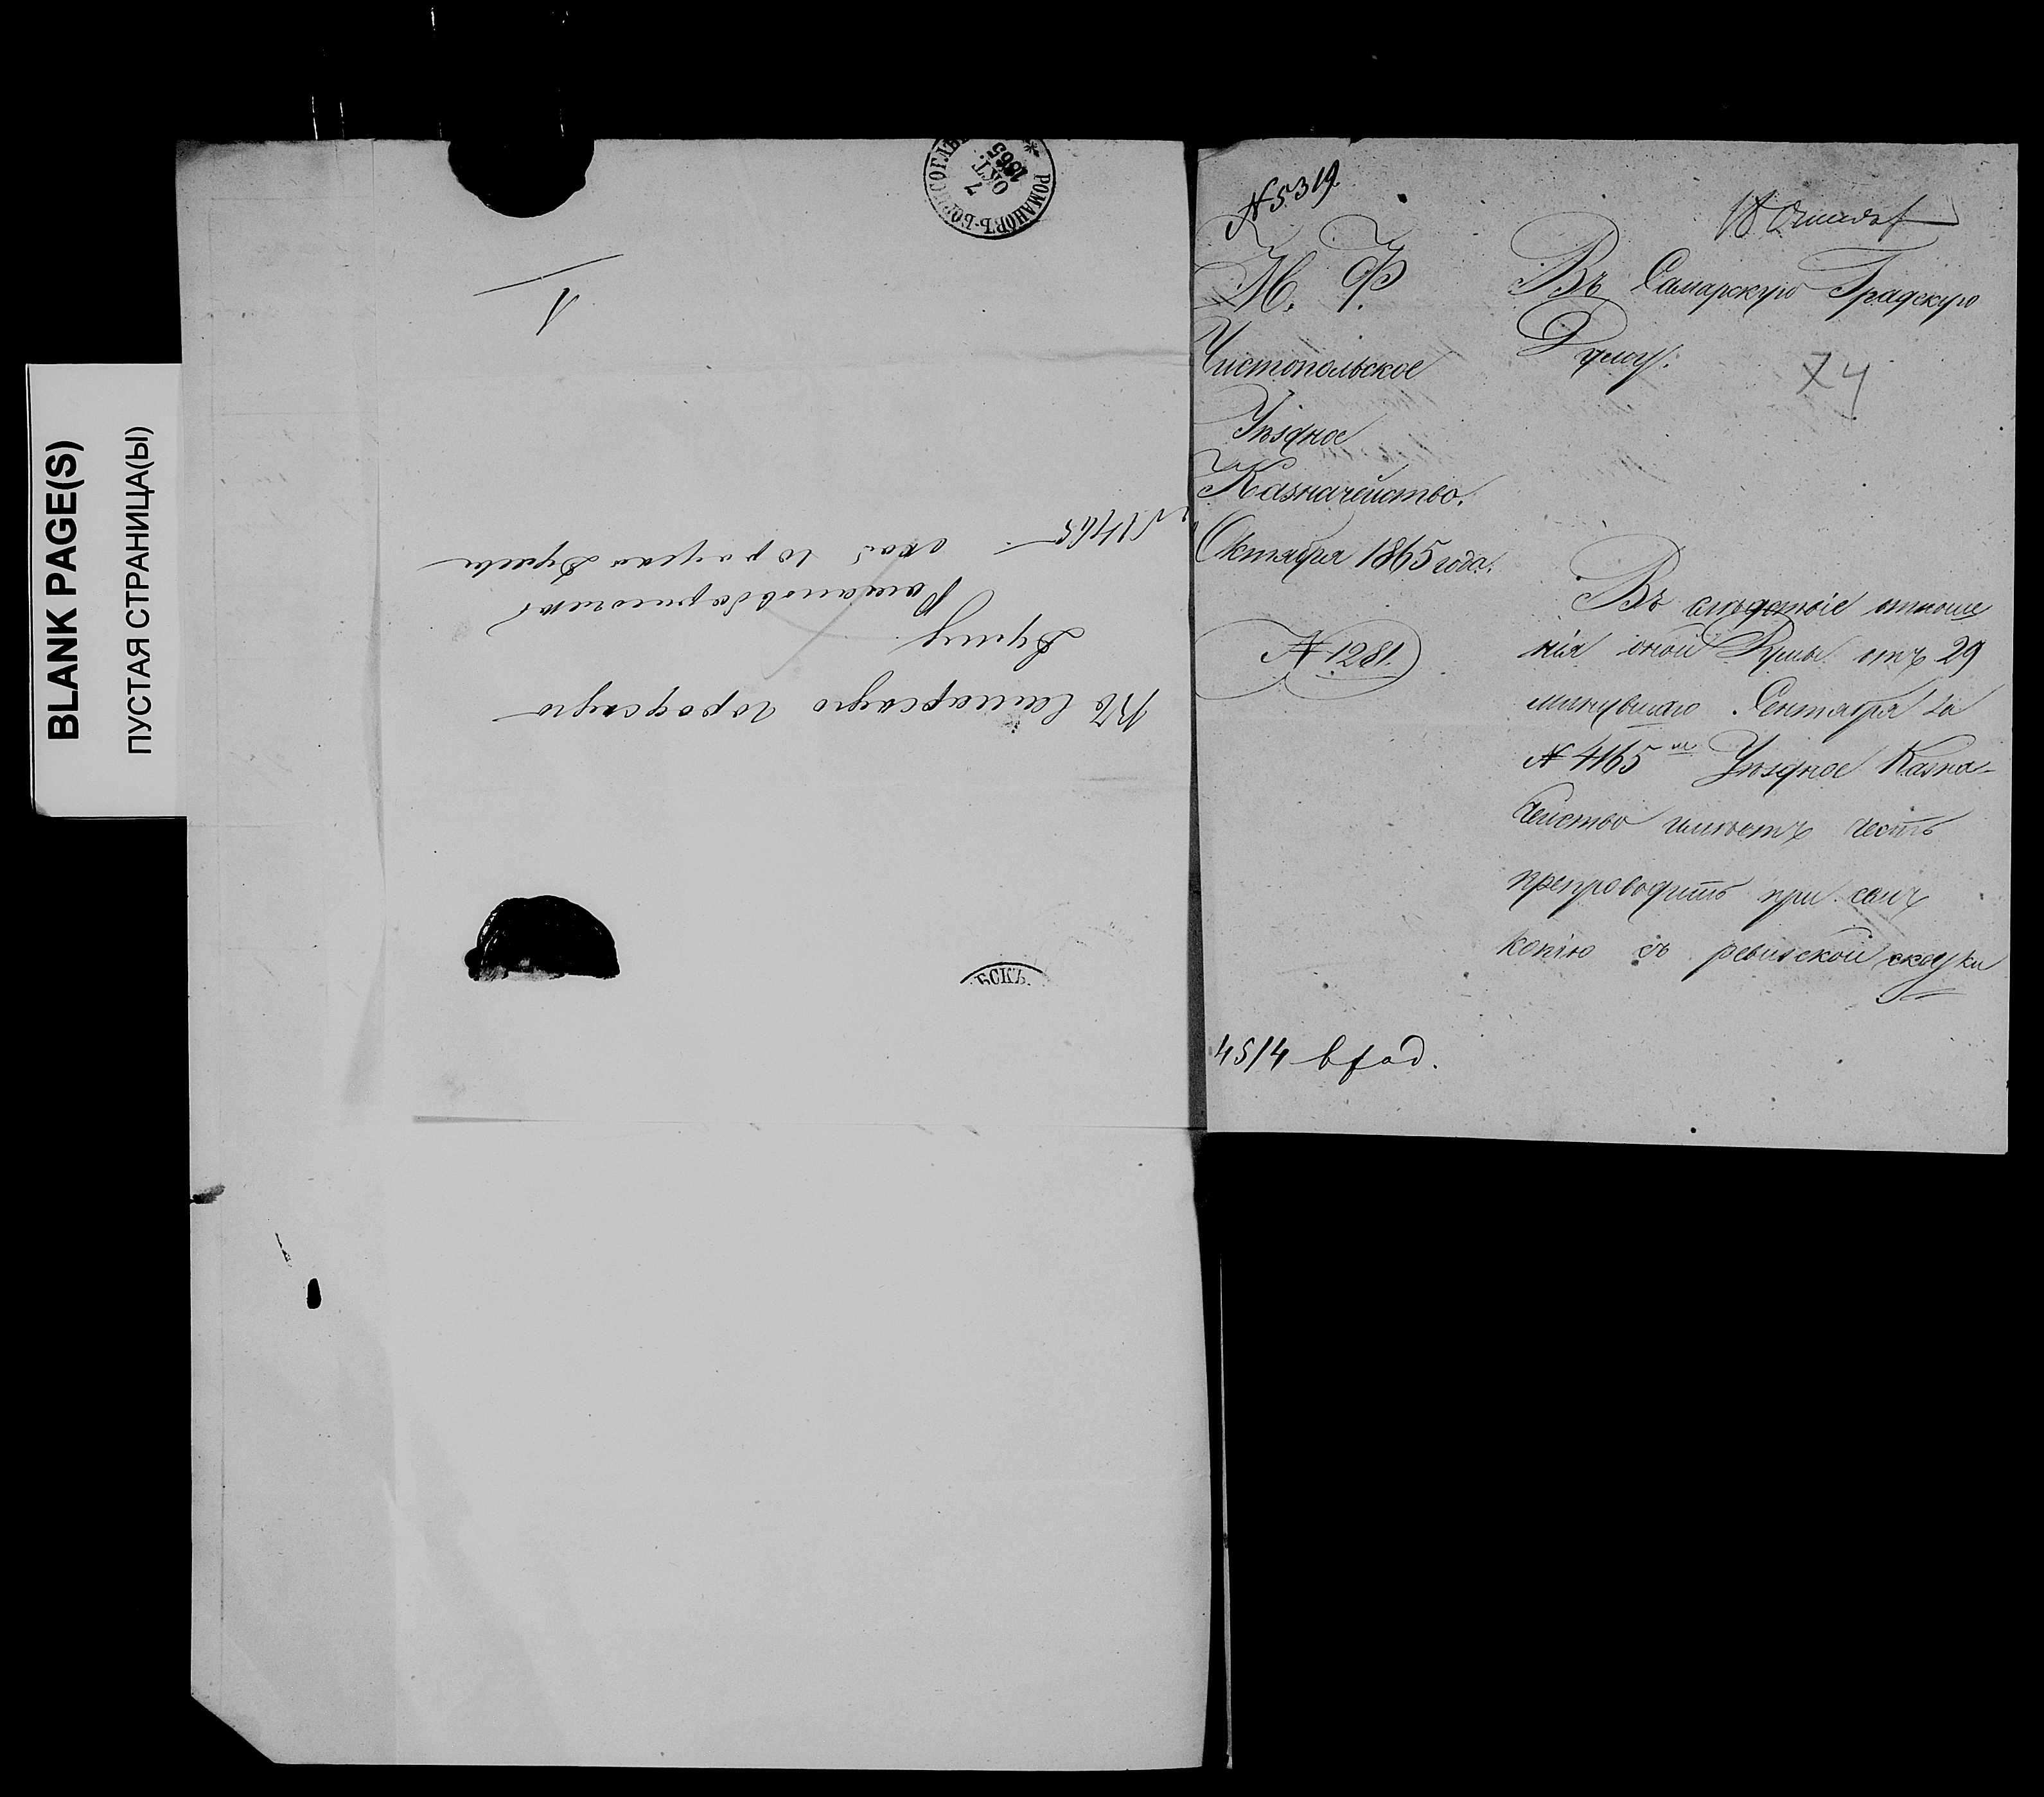 BLANK PAGE(S)
ПУСТАЯ СТРАНИЦА(Ы)
РОМАНОВЪ-БОРИСОГЛѢБ
7
ОКТ.
1865
1
Въ Самарскую городскую
Думу
Романовоборисоглѣб
ской городской Думы
№ 1465
БСКЪ.
№ 5319.
М. Ф.
Чистопольское
Уѣздное
Казначейство.
Октября 1865 года.
№ 1281.
4514
18 Октября
Въ Самарскую Градскую
Думу.
74
Въ слѣдствіе отноше
нія оной Думы отъ 29
минувшаго Сентября за
№ 4165м Уѣздное Казна-
чейство имѣетъ честь
препроводить при семъ
копію съ ревизской сказки